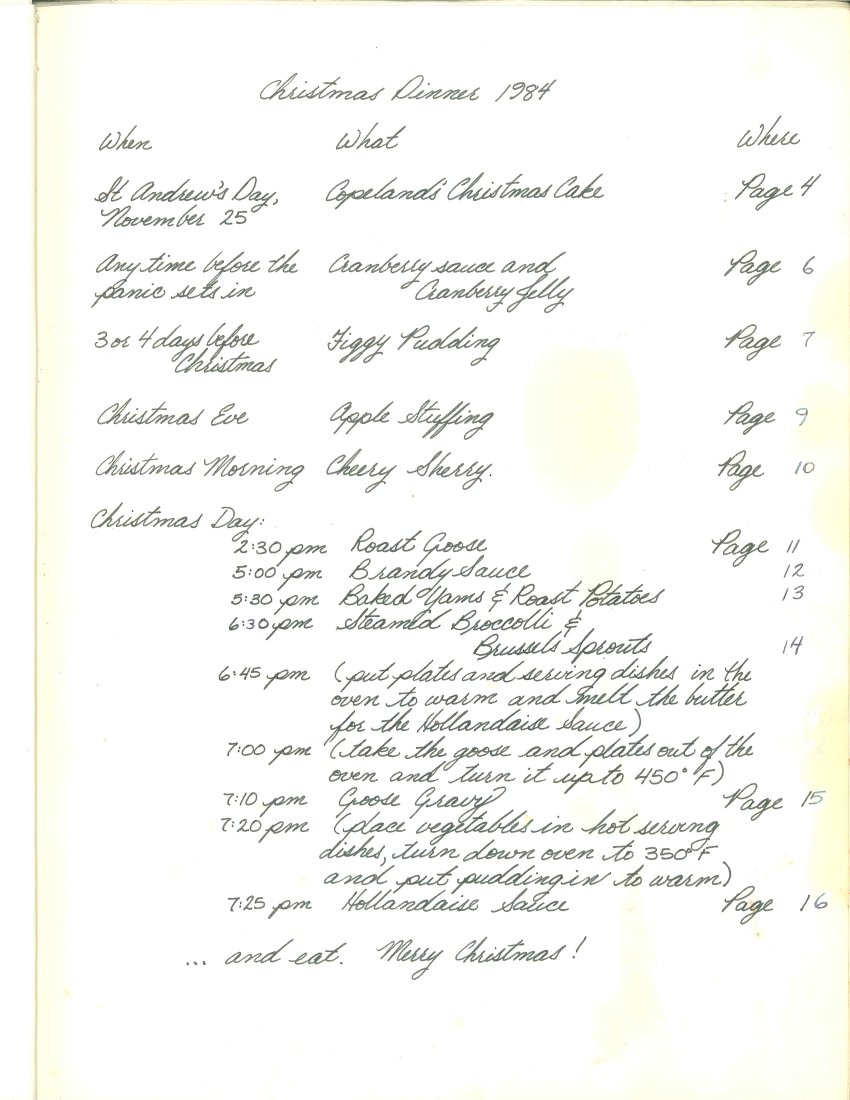 Christmas Dinner 1984
When What Where
St Andrew's Day, Copeland's Christmas Cake Page 4
November 25
Any time before the Cranberry sauce and Page 6
panic sets in Cranberry Jelly
3 or 4 days before Figgy Pudding Page 7
Christmas
Christmas Eve Apple Stuffing Page 9
Christmas Morning Cheery Sherry. Page 10
Christmas Day:
2:30 pm Roast Goose Page 11
5:00 pm Brandy Sauce 12
5:30 pm Baked Yams & Roast Potatoes 13
6:30 pm Steamed Broccolli &
Brussels Sprouts 14
6:45 pm (put plates and serving dishes in the
oven to warm and melt the butter
for the Hollandaise Sauce)
7:00 pm (take the goose and plates out of the
oven and turn it up to 450° F)
7:10 pm Goose Gravy Page 15
7:20 pm (place vegetables in hot serving
dishes, turn down oven to 350°F
and put pudding in to warm)
7:25 pm Hollandaise Sauce Page 16
... and eat. Merry Christmas!